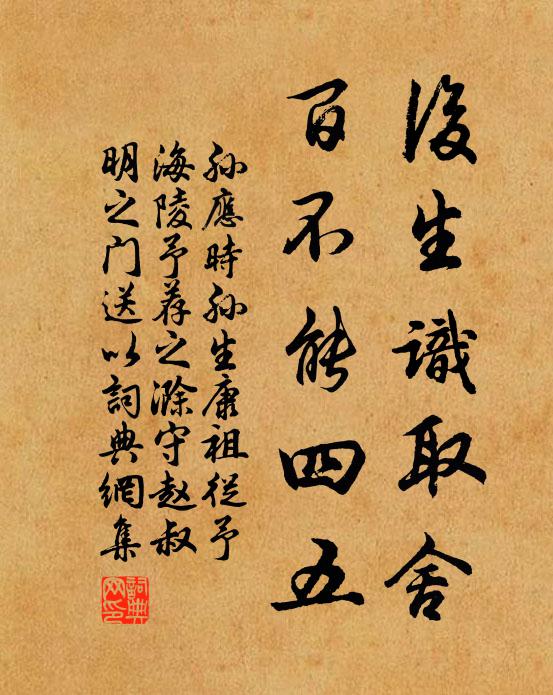 後生識取舍
百不能四五
孙應時孙生康祖從予
海陵予荐之滁守赵叔
明之门送以詞典網集
詞典
网印